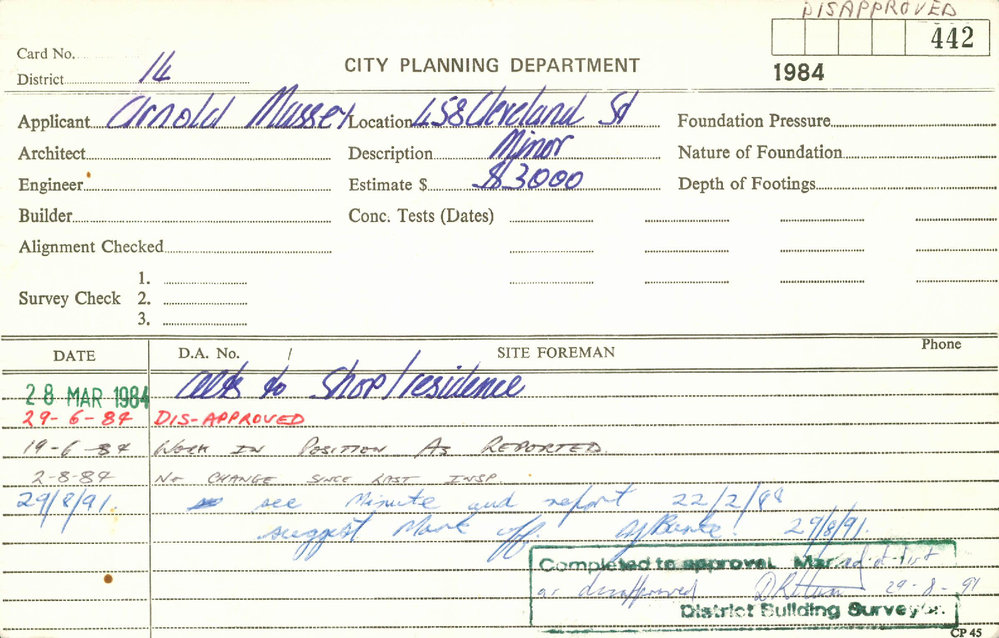 DISAPPROVED
442
1984
Card No.
District 14
CITY PLANNING DEPARTMENT
Applicant Arnold Massey Location 458 Cleveland St Foundation Pressure
Architect Description Minor Nature of Foundation
Engineer Estimate $ $3000 Depth of Footings
Builder Conc. Tests (Dates)
Alignment Checked
Survey Check 1.
2.
3.
DATE D.A. No. / SITE FOREMAN Phone
28 MAR 1984 alts to shop/residence
29-6-84 DIS-APPROVED
19-6-84 WORK IN POSITION AS REPORTED.
2-8-84 NO CHANGE SINCE LAST INSP.
29/8/91. see Minute and report 22/2/88
suggest Mark off. 29/8/91.
Completed to approval. Mar
as disapproved 29-8-91
District Building Surveyor.
CP 45